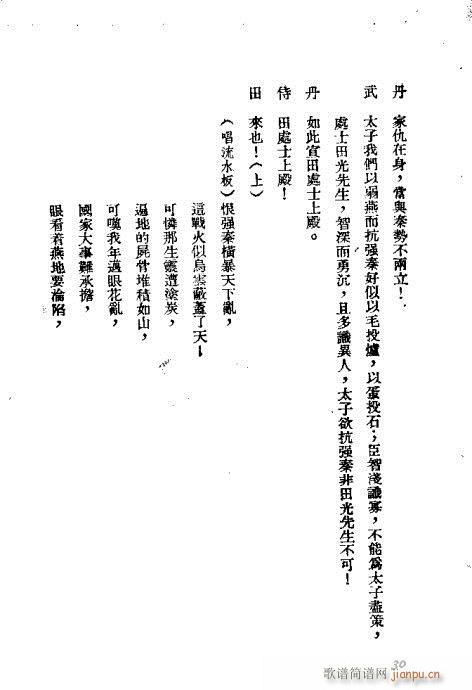 丹　家仇在身，當與秦勢不兩立！
武　太子我們以弱燕而抗强秦好似以毛投爐，以蛋投石；臣智淺識寡，不能爲太子盡策，
處士田光先生，智深而勇沉，且多識異人，太子欲抗强秦非田光先生不可！
丹　如此宣田處士上殿。
侍　田處士上殿！
田　來也！（上）
（唱流水板）恨强秦橫暴天下亂，
這戰火似烏雲蔽蓋了天！
可憐那生靈遭塗炭，
遍地的屍骨堆積如山，
可嘆我年邁眼花亂，
國家大事難承擔，
眼看着燕地要淪陷，
30
歌谱简谱网
jianpu.cn